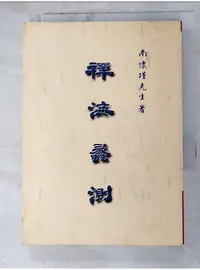 南懷瑾先生著
禪海蠡測